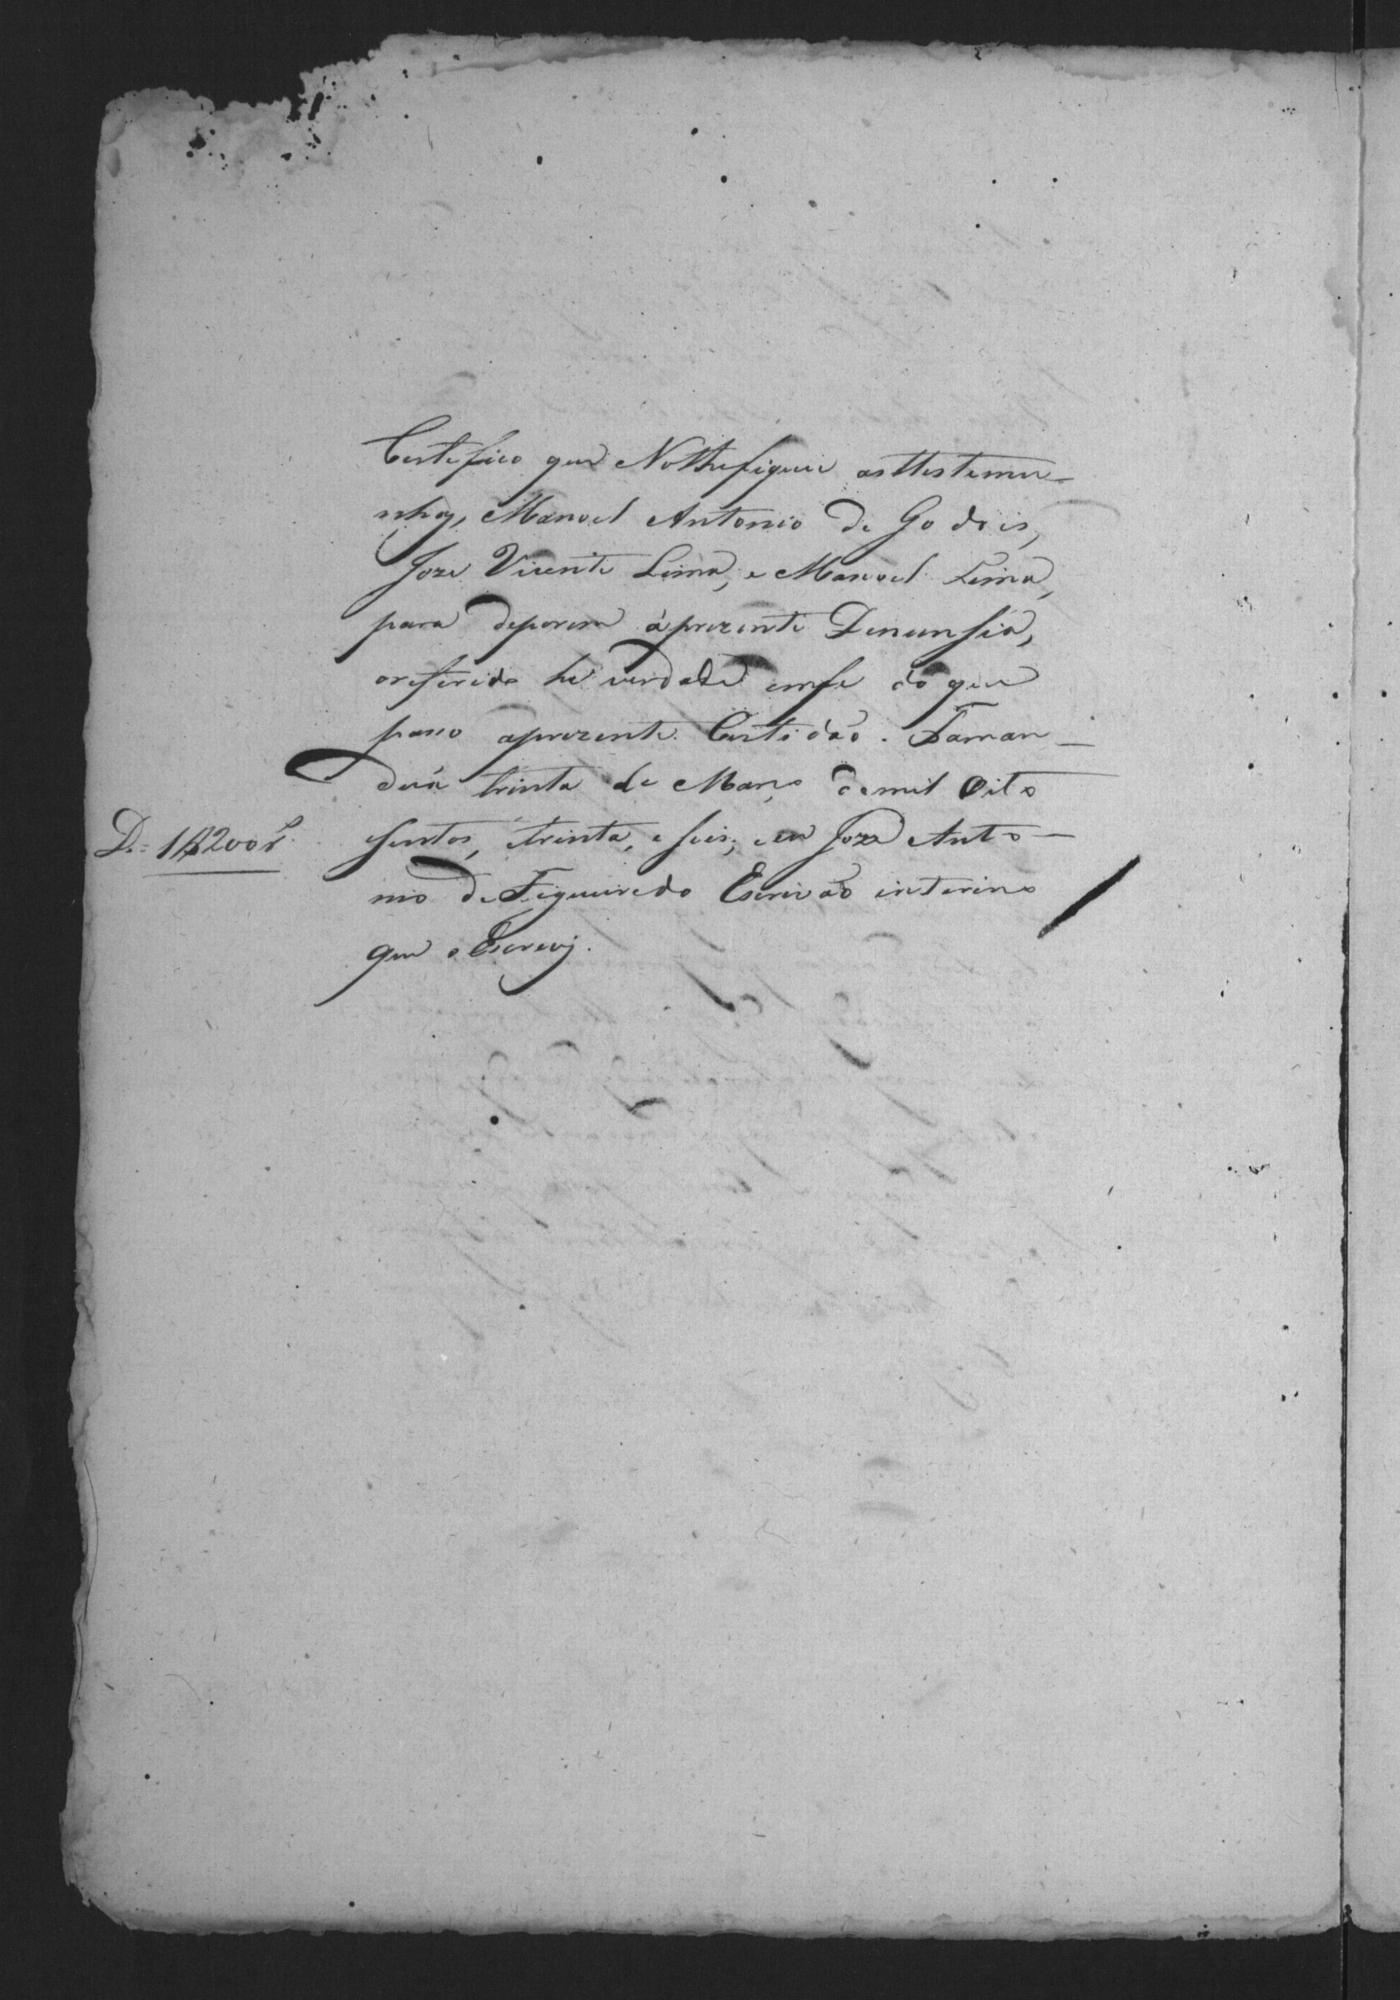 Certefico que Nothefiquei as ttestemu-
nhas, Manoel Antonio de Godois,
Joze Vicente Lima, e Manoel Lima,
para deporem á prezente Denunsia,
oreferido he verdade emfe do que
paso aprezente Certidão. Taman-
duá trinta de Março demil Oito
D.= 1$200 rs
sentos, etrinta, e seis; eu Joze Anto-
nio de Figueiredo Escrivão interino
que o Escrevj.